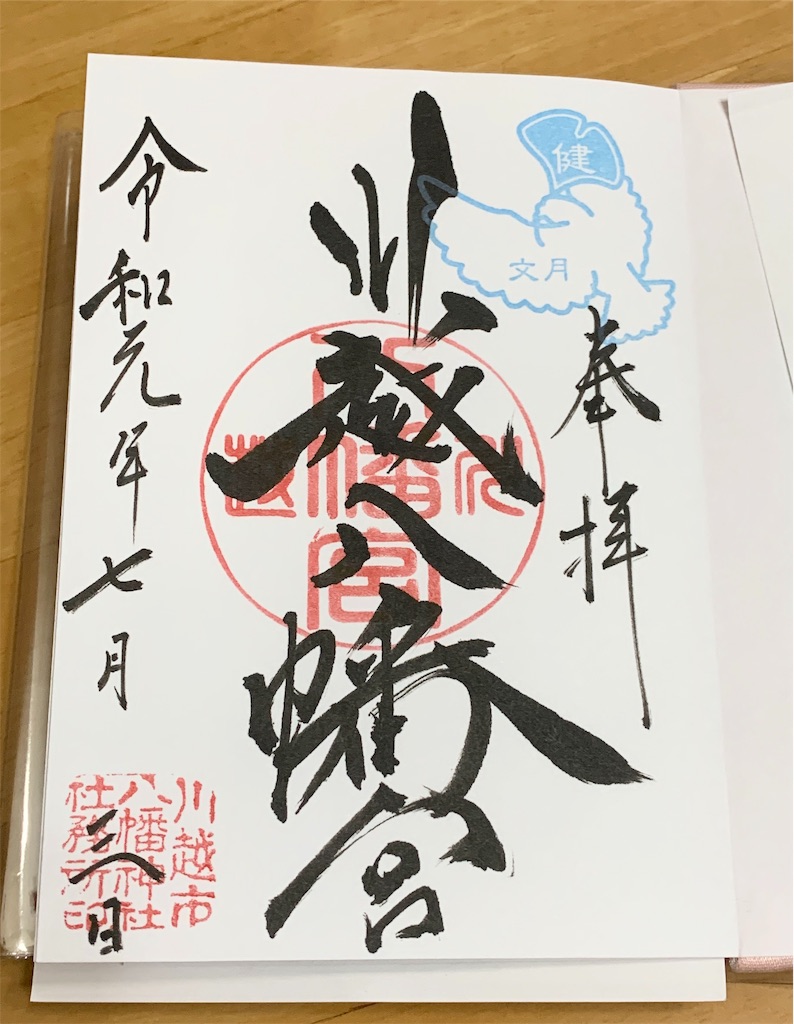 健
文月
奉拝
川越八幡宮
川
八幡宮
越
令和元年七月
日
川越市
八幡神社
社務所印